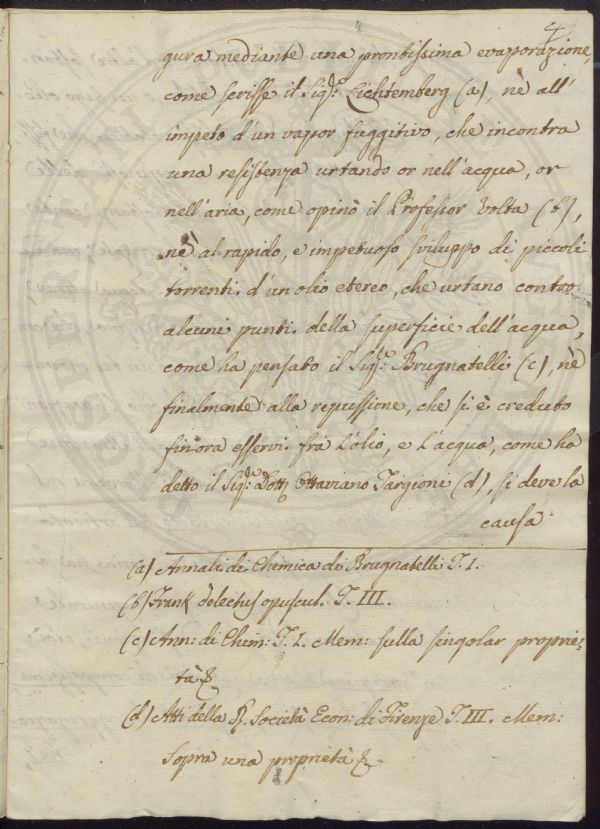 4
gura mediante una prontissima evaporazione,
come scrisse il Sig.r Lichtemberg (a), nè all'
impeto d'un vapor fuggitivo, che incontra
una resistenza urtando or nell'acqua, or
nell'aria, come opinò il Professor Volta (b),
nè al rapido, e impetuoso sviluppo di piccoli
torrenti d'un olio etereo, che urtano contro
alcuni punti della superficie dell'acqua,
come ha pensato il Sig.r Brugnatelli (c), nè
finalmente alla repussione, che si è creduto
finora esservi frà l'olio, e l'acqua, come ha
detto il Sig.r Dott. Ottaviano Targioni (d), si deve la
causa
(a) Annali di Chimica di Brugnatelli T. I.
(b) Frank delectus opuscul. T. III.
(c) Ann: di Chim: T. I. Mem: sulla singolar proprie-
tà &
(d) Atti della R. Società Econ: di Firenze T. III. Mem:
sopra una proprietà &.